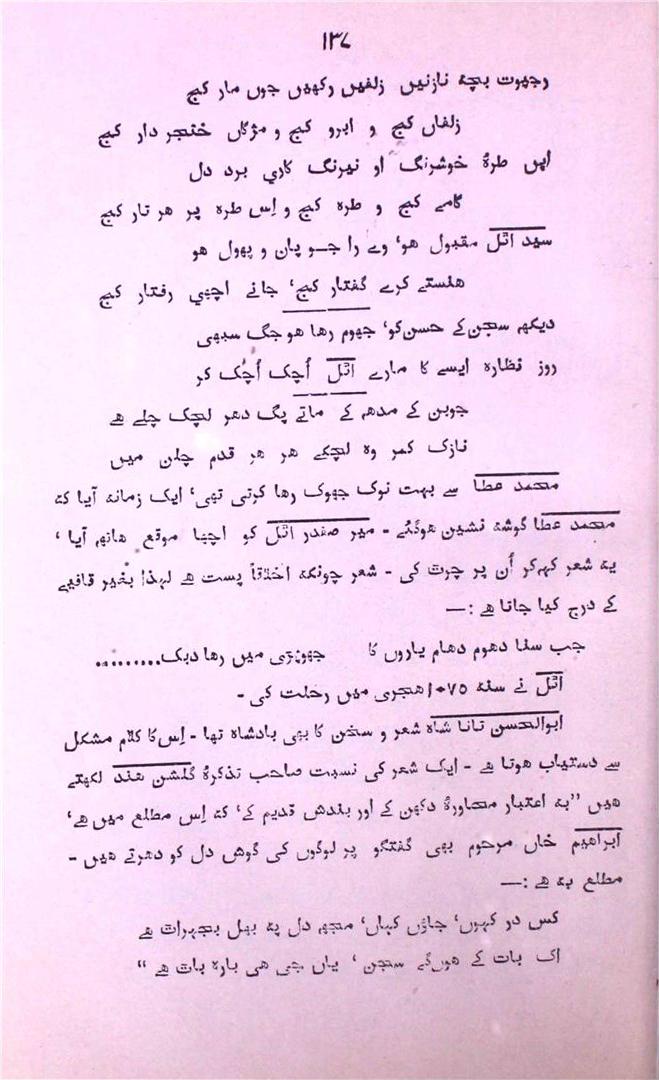 ۱۳۷
رجپوت بچہ نازنیں زلفیں رکھیں جوں مار کج
زلفاں کج و ابرو کج و مژگاں خنجر دار کج
ایں طرۂ خوشرنگ او نیرنگ کاری برد دل
گاہے کج و طرہ کج و اِس طرہ پر ہر تار کج
سید اٹل مقبول ہو، وے را جو پان و پھول ہو
ہنستے کرے گفتار کج، جانے اچھی رفتار کج
دیکھ سجن کے حسن کو، جھوم رہا ہو جگ سبھی
روز نظارہ ایسے کا مارے اٹل اُچک اُچک کر
جوبن کے مدھ کے ماتے پگ دھر لچک چلے ہے
نازک کمر وہ لچکے ہر ہر قدم چلن میں
محمد عطا سے بہت نوک جھوک رہا کرتی تھی، ایک زمانہ آیا کہ
محمد عطا گوشہ نشین ہوگئے - میر صفدر اٹل کو اچھا موقع ہاتھ آیا،
یہ شعر کہہ کر اُن پر چوٹ کی - شعر چونکہ اخلاقاً پست ہے لہذا بغیر قافیے
کے درج کیا جاتا ہے :—
جب سنا دھوم دھام یاروں کا جھونپڑی میں رہا دبک.........
اٹل نے سنہ ۱۰۷۵ ہجری میں رحلت کی -
ابوالحسن تانا شاہ شعر و سخن کا بھی بادشاہ تھا - اِس کا کلام مشکل
سے دستیاب ہوتا ہے - ایک شعر کی نسبت صاحب تذکرۂ گلشن ہند لکھتے
ہیں ”بہ اعتبار محاورۂ دکھن کے اور بندش قدیم کے، کہ اِس مطلع میں ہے،
ابراہیم خاں مرحوم بھی گفتگو پر لوگوں کی گوش دل کو دھرتے ہیں -
مطلع یہ ہے :—
کس در کہوں، جاؤں کہاں، مجھ دل پہ بھل بچھرات ہے
اک بات کے ہوں گے سجن، یاں جی ہی بارہ بات ہے “